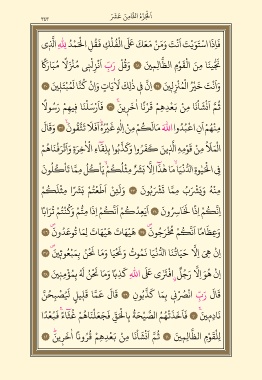 اَلْجُزْءُ الثَّامِنُ عَشَرَ
٣٤٣
فَإِذَا اسْتَوَيْتَ أَنْتَ وَمَنْ مَعَكَ عَلَى الْفُلْكِ فَقُلِ الْحَمْدُ لِلّٰهِ الَّذِى
نَجّٰينَا مِنَ الْقَوْمِ الظَّالِمِينَ ۝ وَقُلْ رَبِّ أَنْزِلْنِى مُنْزَلًا مُبَارَكًا
وَأَنْتَ خَيْرُ الْمُنْزِلِينَ ۝ إِنَّ فِى ذٰلِكَ لَأٰيَاتٍ وَإِنْ كُنَّا لَمُبْتَلِينَ ۝
ثُمَّ أَنْشَأْنَا مِنْ بَعْدِهِمْ قَرْنًا أٰخَرِينَ ۝ فَأَرْسَلْنَا فِيهِمْ رَسُولًا
مِنْهُمْ أَنِ اعْبُدُوا اللّٰهَ مَا لَكُمْ مِنْ إِلٰهٍ غَيْرُهُ أَفَلَا تَتَّقُونَ ۝ وَقَالَ
الْمَلَأُ مِنْ قَوْمِهِ الَّذِينَ كَفَرُوا وَكَذَّبُوا بِلِقَاءِ الْأٰخِرَةِ وَأَتْرَفْنَاهُمْ
فِى الْحَيٰوةِ الدُّنْيَا مَا هٰذَا إِلَّا بَشَرٌ مِثْلُكُمْ يَأْكُلُ مِمَّا تَأْكُلُونَ
مِنْهُ وَيَشْرَبُ مِمَّا تَشْرَبُونَ ۝ وَلَئِنْ أَطَعْتُمْ بَشَرًا مِثْلَكُمْ
إِنَّكُمْ إِذًا لَخَاسِرُونَ ۝ أَيَعِدُكُمْ أَنَّكُمْ إِذَا مِتُّمْ وَكُنْتُمْ تُرَابًا
وَعِظَامًا أَنَّكُمْ مُخْرَجُونَ ۝ هَيْهَاتَ هَيْهَاتَ لِمَا تُوعَدُونَ ۝
إِنْ هِىَ إِلَّا حَيَاتُنَا الدُّنْيَا نَمُوتُ وَنَحْيَا وَمَا نَحْنُ بِمَبْعُوثِينَ ۝
إِنْ هُوَ إِلَّا رَجُلٌ افْتَرٰى عَلَى اللّٰهِ كَذِبًا وَمَا نَحْنُ لَهُ بِمُؤْمِنِينَ ۝
قَالَ رَبِّ انْصُرْنِى بِمَا كَذَّبُونِ ۝ قَالَ عَمَّا قَلِيلٍ لَيُصْبِحُنَّ
نَادِمِينَ ۝ فَأَخَذَتْهُمُ الصَّيْحَةُ بِالْحَقِّ فَجَعَلْنَاهُمْ غُثَاءً فَبُعْدًا
لِلْقَوْمِ الظَّالِمِينَ ۝ ثُمَّ أَنْشَأْنَا مِنْ بَعْدِهِمْ قُرُونًا أٰخَرِينَ ۝